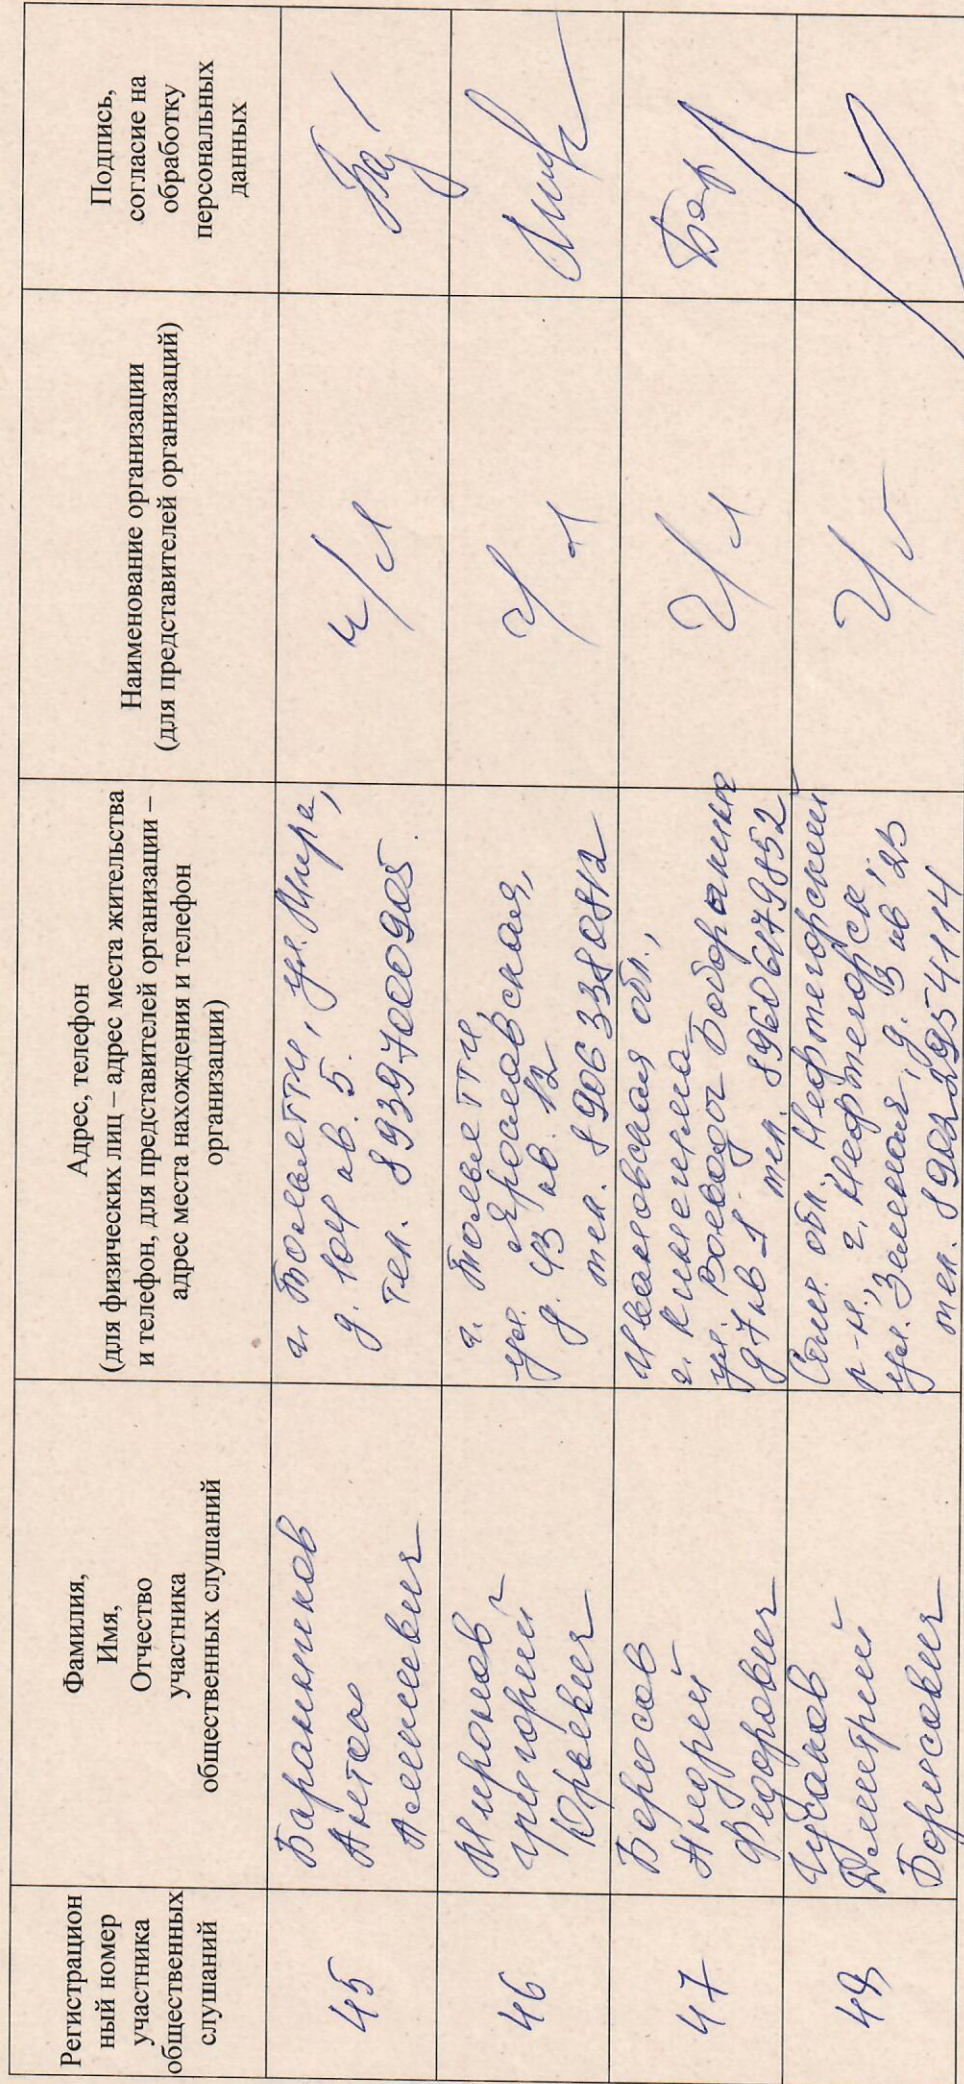 Регистрацион
ный номер
участника
общественных
слушаний
Фамилия,
Имя,
Отчество
участника
общественных слушаний
Адрес, телефон
(для физических лиц – адрес места жительства
и телефон, для представителей организации –
адрес места нахождения и телефон
организации)
Наименование организации
(для представителей организаций)
Подпись,
согласие на
обработку
персональных
данных
45
Баранников
Антон
г. Тольятти, ул. Мира,
д. 104 кв. 5.
тел. 89397000905.
ч/л
46
Миронов
Григорий
Юрьевич
г. Тольятти,
ул. Ярославская,
д. 43 кв. 12
тел. 89063380812
ч/л
47
Борисов
Андрей
Федорович
Ивановская обл.,
г. Кинешма
ул. Воеводы Боборыкина
д 7 кв 1 тел. 89606179852
ч/л
48
Гусаков
Дмитрий
Борисович
Сам. обл., Нефтегорский
р-н., г. Нефтегорск,
ул. Зеленая, д. 3 кв 23
тел. 89022954114
ч/л